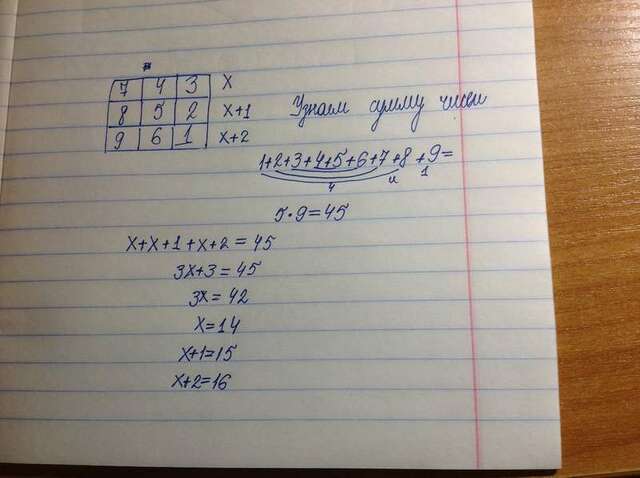 7 4 3 x
8 5 2 x+1
9 6 1 x+2
Узнаем сумму чисел
1+2+3+4+5+6+7+8+9=
5·9=45
x+x+1+x+2=45
3x+3=45
3x=42
x=14
x+1=15
x+2=16